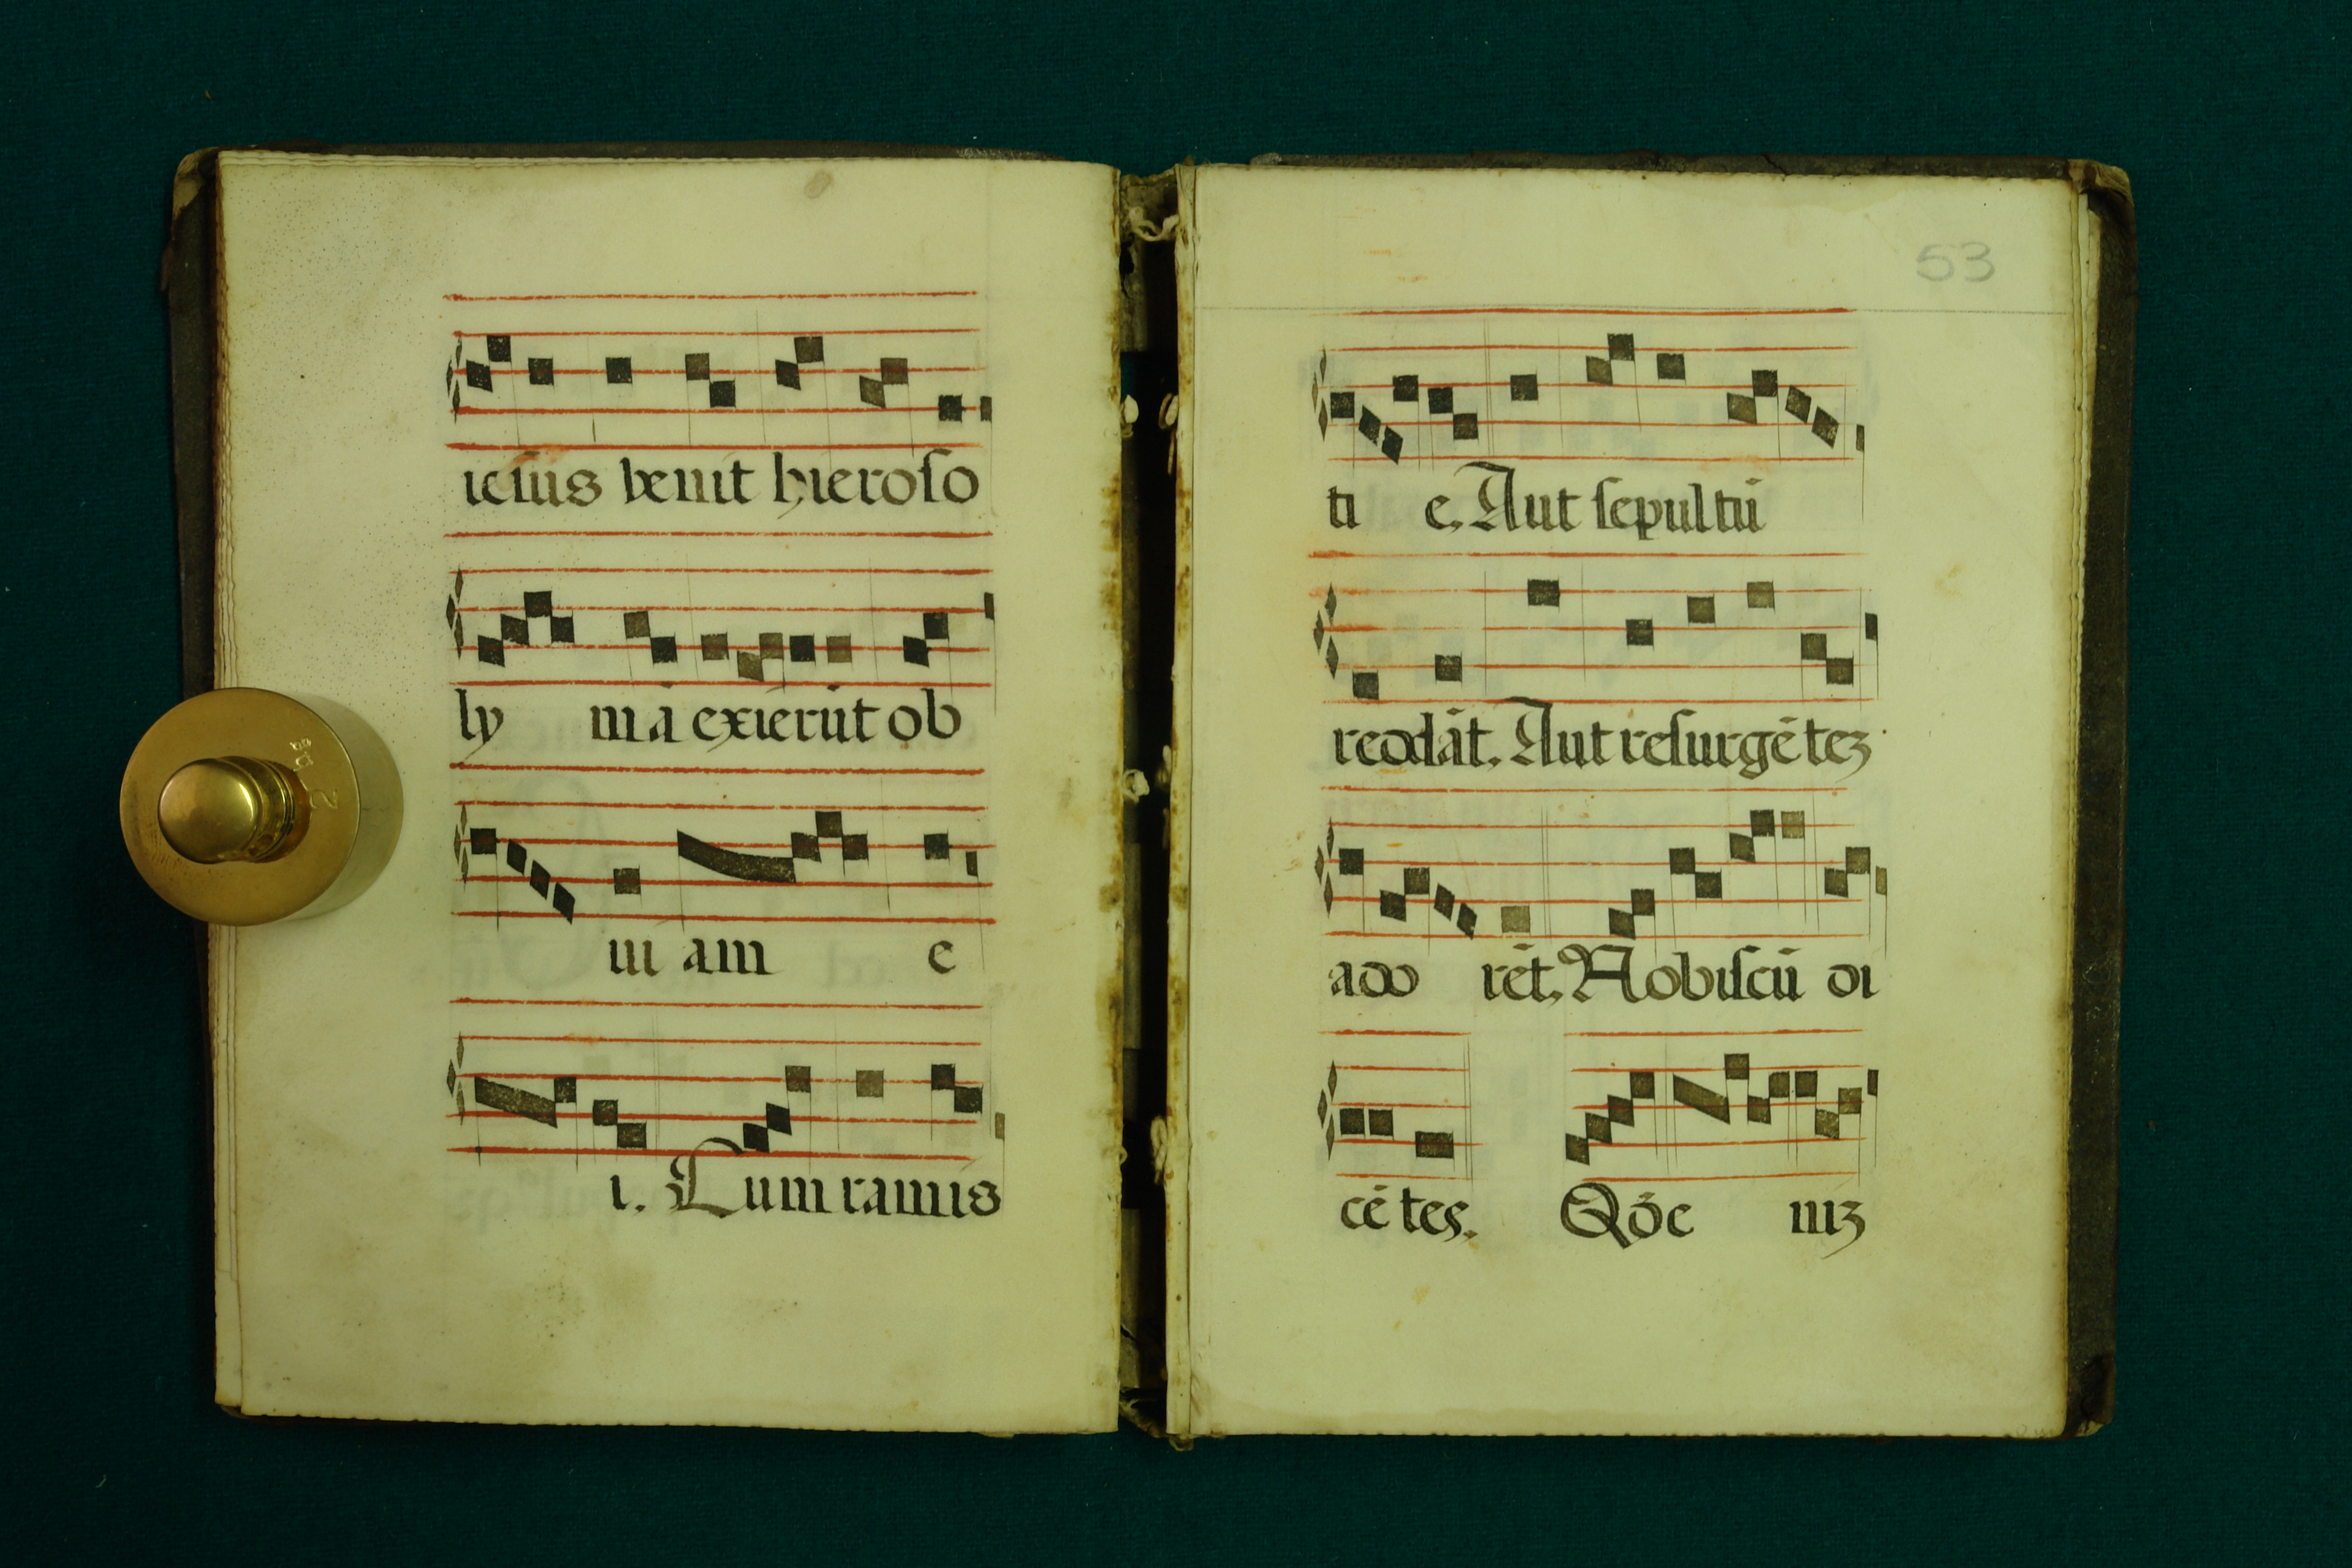 iesus venit hieroso
ly ma exierūt ob
ui am e
i. Cum ramis
53
ti e. Aut sepultū
reddāt. Aut resurgētez
ado rēt. Nobiscū di
cētes. Qđ e niz